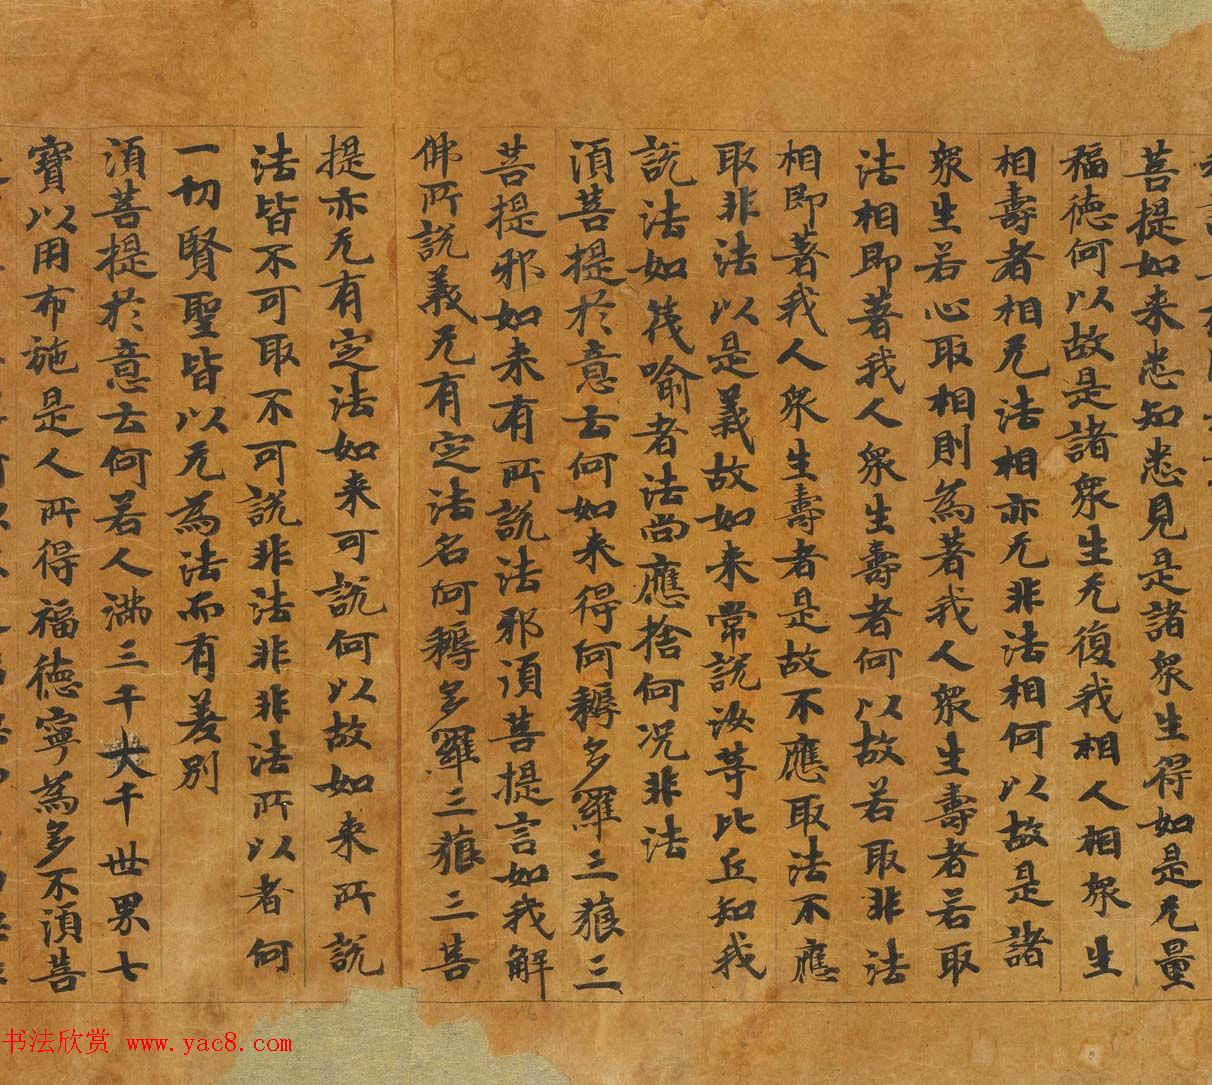 菩提如来悉知悉見是諸衆生得如是无量
福德何以故是諸衆生无復我相人相衆生
相壽者相无法相亦无非法相何以故是諸
衆生若心取相則為著我人衆生壽者若取
法相即著我人衆生壽者何以故若取非法
相即著我人衆生壽者是故不應取法不應
取非法以是義故如来常說汝等比丘知我
說法如筏喻者法尚應捨何况非法
湏菩提於意云何如来得阿耨多羅三藐三
菩提邪如来有所說法邪湏菩提言如我解
佛所說義无有定法名阿耨多羅三藐三菩
提亦无有定法如来可說何以故如来所說
法皆不可取不可說非法非非法所以者何
一切賢聖皆以无為法而有差別
湏菩提於意云何若人満三千大千世界七
寶以用布施是人所得福德寧為多不湏菩
书法欣赏 www.yac8.com